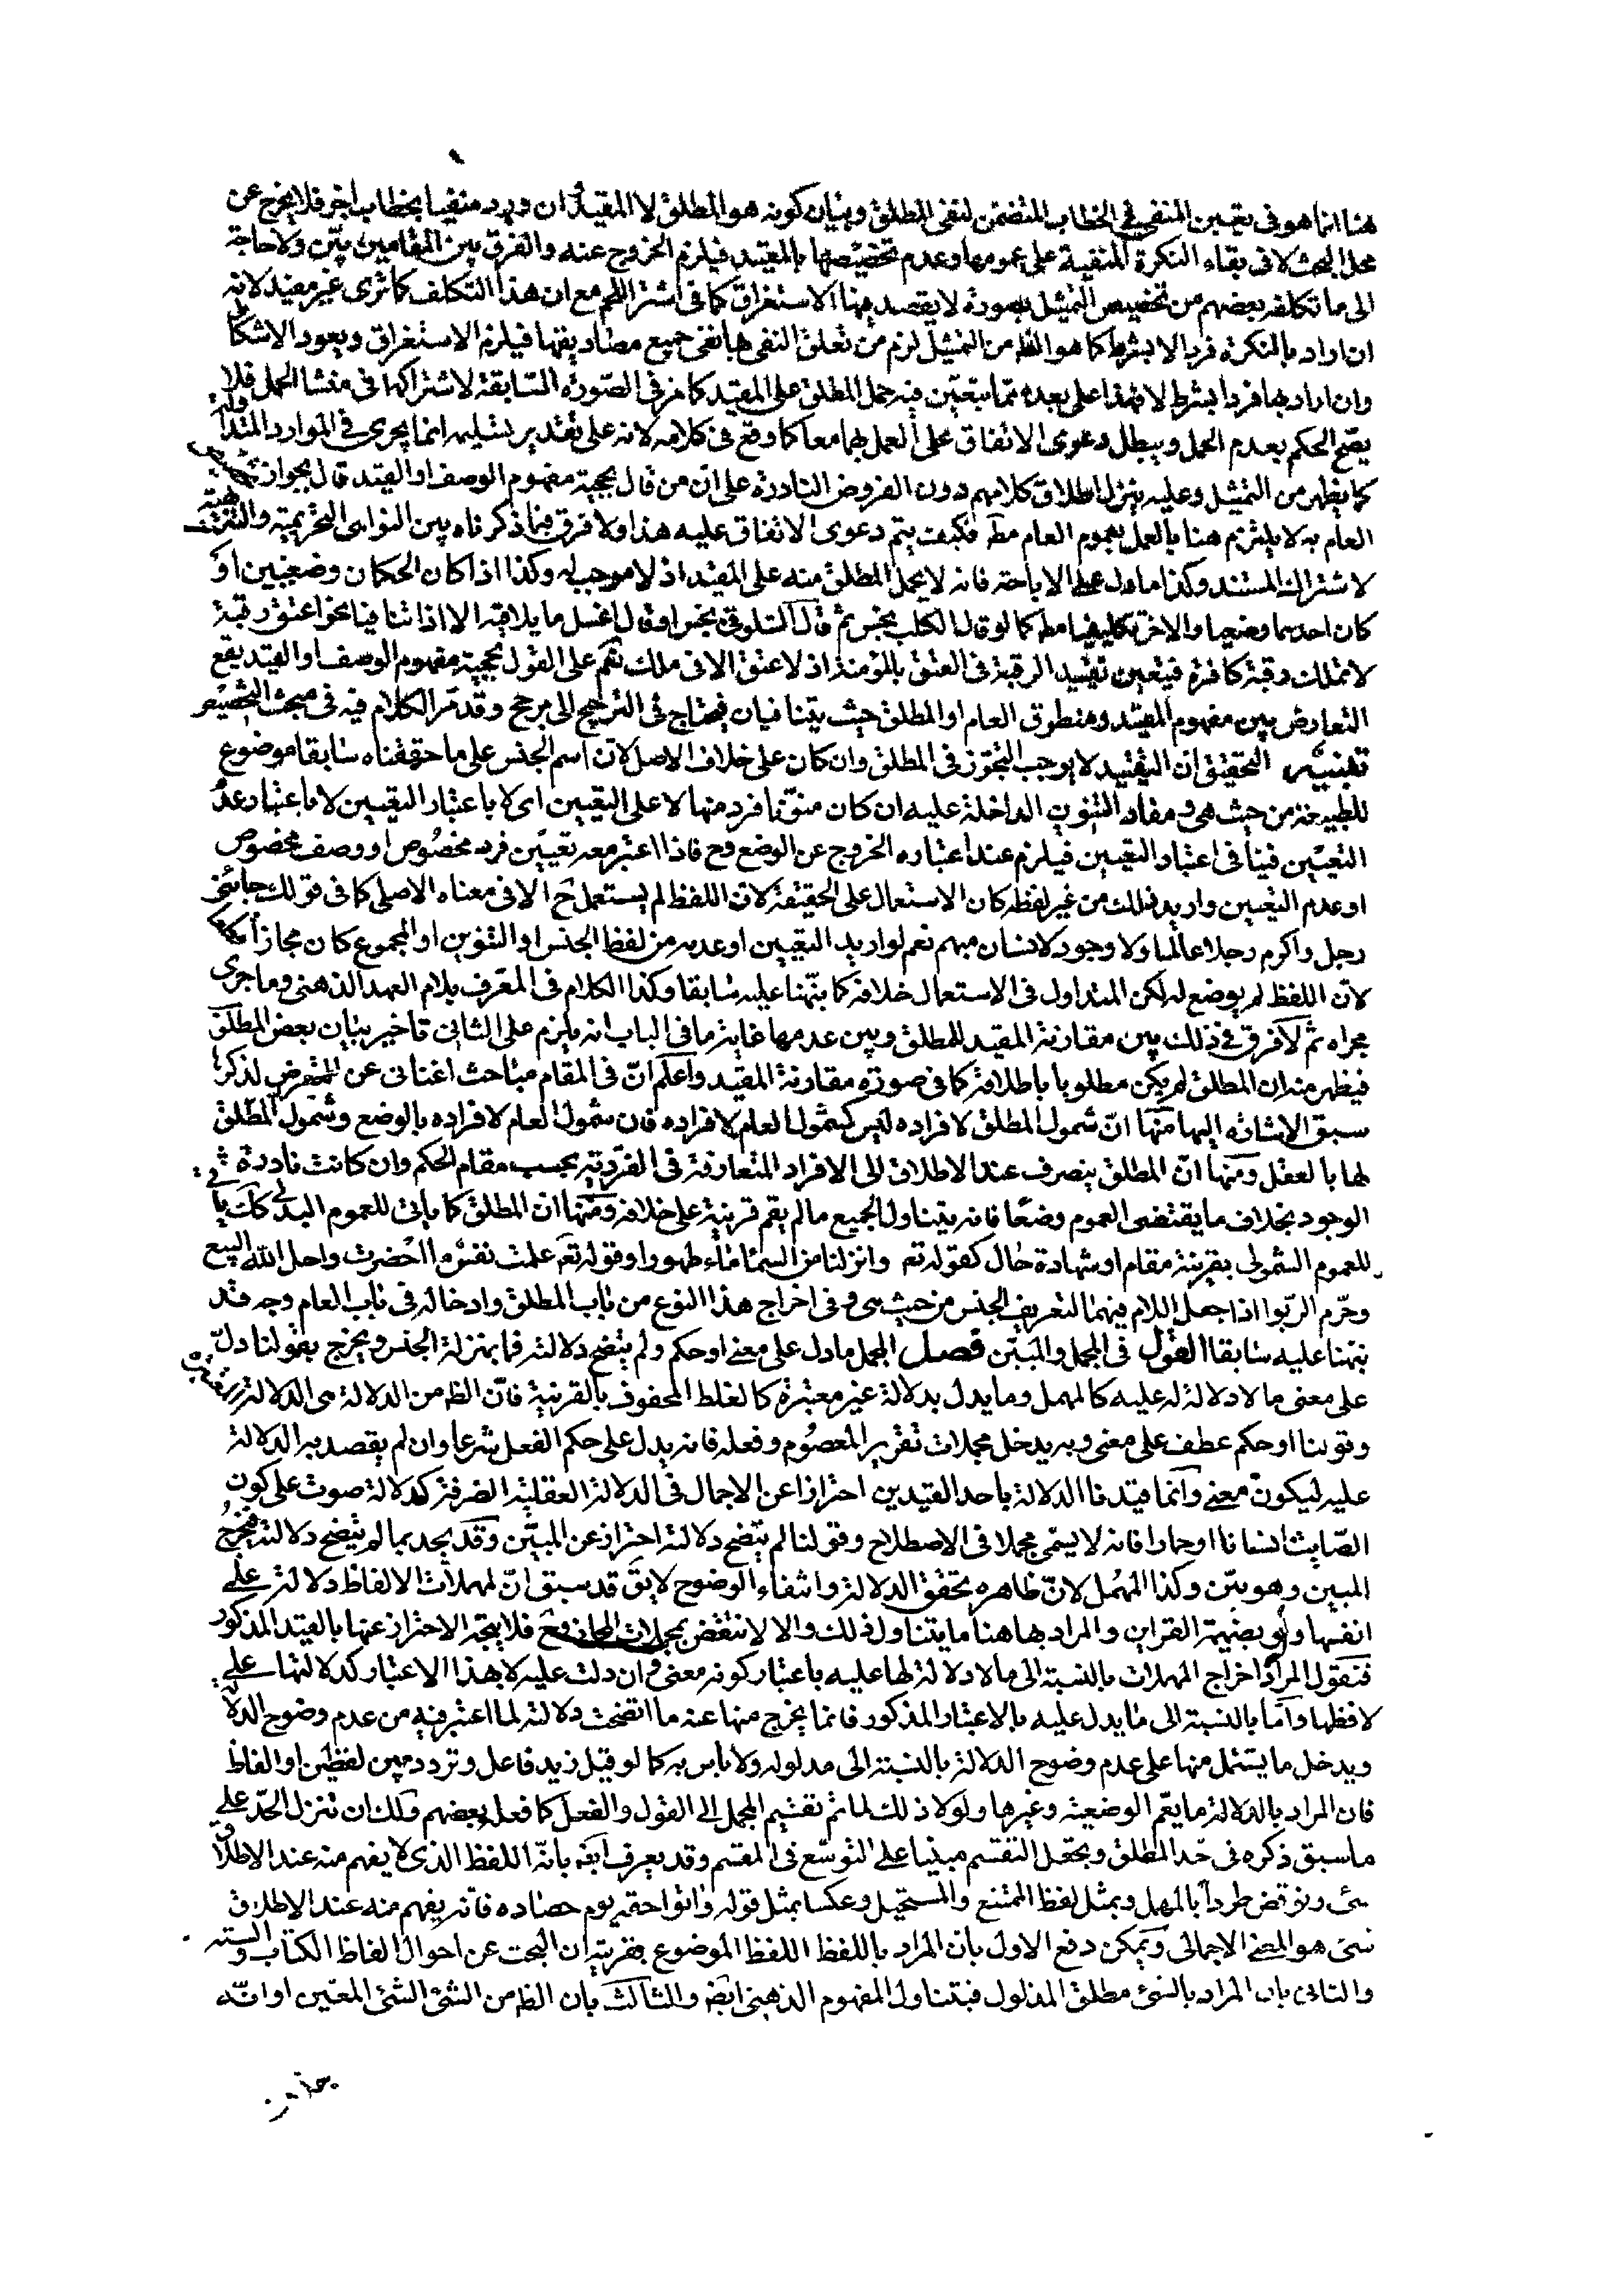 هنا انما هو فى تعيين المنفى فى الخطاب المتضمن لنفى المطلق وبيان كونه هو المطلق لا المقيد ان ورد منفيا بخطاب اخر فلا يخرج عن
محل البحث لا فى بقاء النكرة المنفية على عمومها وعدم تخصيصها بالمقيد فيلزم الخروج عنه والفرق بين المقامين بيّن ولا حاجة
الى ما تكلفه بعضهم من تخصيص التمثيل بصورة لا يقصد منها الاستغراق كما فى اشتر اللحم مع ان هذا التكلف كما ترى غير مفيد لانه
ان اراد بالنكرة فردا لا بشرط كما هو الظ من التمثيل لزم من تعلق النفى بها نفى جميع مصاديقها فيلزم الاستغراق ويعود الاشكال
وان اراد بها فردا بشرط لا فهذا على بعده مما يتعيّن فيه حمل المطلق على المقيد كما مر فى الصّورة السّابقة لاشتراكهما فى منشا الحمل فلا
يصّح الحكم بعدم الحمل ويبطل دعوى الاتفاق على العمل بهما معا كما وقع فى كلامه لانه على تقدير تسليمه انما يجرى فى الموارد المتداولة
كما يظهر من التمثيل وعليه ينزل اطلاق كلامهم دون الفروض النادرة على ان من قال بحجية مفهوم الوصف او القيد قال بجواز تخصيص
العام به لا يلتزم هنا بالعمل بعموم العام مط فكيف يتم دعوى الاتفاق عليه هذا ولا فرق فيما ذكرناه بين النواهى التحريمية والتنزيهية
لاشتراك المستند وكذا ما دل على الاباحة فانه لا يحمل المطلق منه على المقيد اذ لا موجب له وكذا اذا كان الحكمان وضعيين او
كان احدهما وضعيا والاخر تكليفيا مط كما لو قال الكلب نجس ثم قال السلوقى نجس او قال اغسل ما يلاقيه الا اذا تنافيا نحو اعتق رقبة
لا تملك رقبة كافرة فيتعين تقييد الرقبة فى العتق بالمؤمنة اذ لا عتق الا فى ملك نعم على القول بحجية مفهوم الوصف او القيد يقع
التعارض بين مفهوم المقيد ومنطوق العام او المطلق حيث يتنافيان فيحتاج فى الترجيح الى مرجح وقد مر الكلام فيه فى مبحث التخصيص
تنبيه التحقيق ان التقييد لا يوجب التجوّز فى المطلق وان كان على خلاف الاصل لان اسم الجنس على ما حققناه سابقا موضوع
للطبيعة من حيث هى ومفاد التنوين الداخلة عليه ان كان منوّنا فرد منها لا على التعيين اى لا باعتبار التعيين لا باعتبار عدم
التعيّين فينا فى اعتبار التعيين فيلزم عند اعتباره الخروج عن الوضع وح فاذا اعتبر معه تعييّن فرد مخصُوص او وصف مخصوص
او عدم التعيين واريد ذلك من غير لفظه كان الاستعمال على الحقيقة لان اللفظ لم يستعمل ح الا فى معناه الاصلى كما فى قولك جائنى
رجل واكرم رجلا عالما ولا وجود لانسان مبهم نعم لو اريد التعيين او عدمه من لفظ الجنس او التنوين او المجموع كان مجازا
لان اللفظ لم يوضع له لكن المتداول فى الاستعمال خلافه كما نبّهنا عليه سابقا وكذا الكلام فى المعّرف بلام العهد الذهنى وما جرى
مجراه ثم لا فرق فى ذلك بين مقارنة المقيد للمطلق وبين عدمها غاية ما فى الباب انه يلزم على الثانى تاخير بيان بعض المطلق
فيظهر منه ان المطلق لم يكن مطلوبا باطلاقه كما فى صورة مقارنة المقيد واعلم انّ فى المقام مباحث اغنانى عن التعرض لذكرها
سبق الاشارة اليها منها انّ شمول المطلق لافراده ليس كشمول العام لافراده فان شمول العام لافراده بالوضع وشمول المطلق
لها بالعقل ومنها انّ المطلق ينصرف عند الاطلاق الى الافراد المتعارفة فى الفرّدية بحسب مقام الحكم وان كانت نادرة فى
الوجود بخلاف ما يقتضى العموم وضعًا فانه يتناول الجميع ما لم يقم قرينة على خلافه ومنها ان المطلق كما ياتى للعموم البدلى كك ياتى
للعموم الشمولى بقرينة مقام او شهادة حال كقوله تعم وانزلنا من السماء ماء طهورا وقوله تعم علمت نفس ما احضرت واحل الله البيع
وحّرم الربوا اذا جعل اللام فيهما لتعريف الجنس من حيث هى وفى اخراج هذا النوع من باب المطلق وادخاله فى باب العام وجه قد
نبهنا عليه سابقا القول فى المجمل والمبيّن فصل المجمل ما دل على معنى او حكم ولم يتضح دلالته فما بمنزلة الجنس ويخرج بقولنا دلّ
على معنى ما لا دلالة له عليه كالمهمل وما يدل بدلالة غير معتبرة كالغلط المحفوف بالقرينة فانّ الظ من الدلالة هى الدلالة المعتبرة
وقولنا او حكم عطف على معنى وبه يدخل مجملات تقرير المعصُوم وفعله فانه يدل على حكم الفعل شرعا وان لم يقصد به الدلالة
عليه ليكون معنى وانما قيدنا الدلالة باحد القيدين احترازا عن الاجمال فى الدلالة العقلية الصرفة كدلالة صوت على كون
الصّايت انسانا او حمارا فانه لا يسمى مجملا فى الاصطلاح وقولنا لم يتضح دلالته احتراز عن المبيّن وقد يحد بما لم يتضح دلالته فيخرج
المبين وهو بيّن وكذا المهمل لانّ ظاهره تحقق الدلالة وانتفاء الوضوح لا يقَ قد سبق انّ لمهملات الالفاظ دلالة على
انفسها ولو بضميمة القراين والمراد بها هنا ما يتناول ذلك والا لانتقض بمجملات المجاز وح فلا يتجه الاحتراز عنها بالقيد المذكور
فنقول المراد اخراج المهملات بالنسبة الى ما لا دلالة لها عليه باعتبار كونه معنى وان دلت عليه لا بهذا الاعتبار كدلالتها على
لافظها وآما بالنسبة الى ما يدل عليه بالاعتبار المذكور فانما يخرج منها عنه ما اتضحت دلالته لما اعتبر فيه من عدم وضوح الدلالة
ويدخل ما يشتمل منها على عدم وضوح الدلالة بالنسبة الى مدلوله ولا باس به كما لو قيل زيد فاعل وتردد بين لفظين او الفاظ
فان المراد بالدلالة ما يعّم الوضعية وغيرها ولولا ذلك لما تم تقسيم المجمل الى القول والفعل كما فعل بعضهم ولك ان تنزل الحدّ على
ما سبق ذكره فى حّد المطلق وبجعل التقسيم مبنيا على التوسّع فى المقسم وقد يعرف ايضَ بانّه اللفظ الذى لا يفهم منه عند الاطلاق
شئ ونوقض طردا بالمهمل وبمثل لفظ الممتنع والمستحيل وعكسا بمثل قوله واتوا حقه يوم حصاده فانّه يفهم منه عند الاطلاق
شئ هو المعنى الاجمالى ويمكن دفع الاول بان المراد باللفظ اللفظ الموضوع بقرينة ان البحث عن احوال الفاظ الكتاب والسنة
والثانى بان المراد بالشئ مطلق المدلول فيتناول المفهوم الذهنى ايضَ والثالث بان الظ من الشئ الشئ المعيّن او انّه